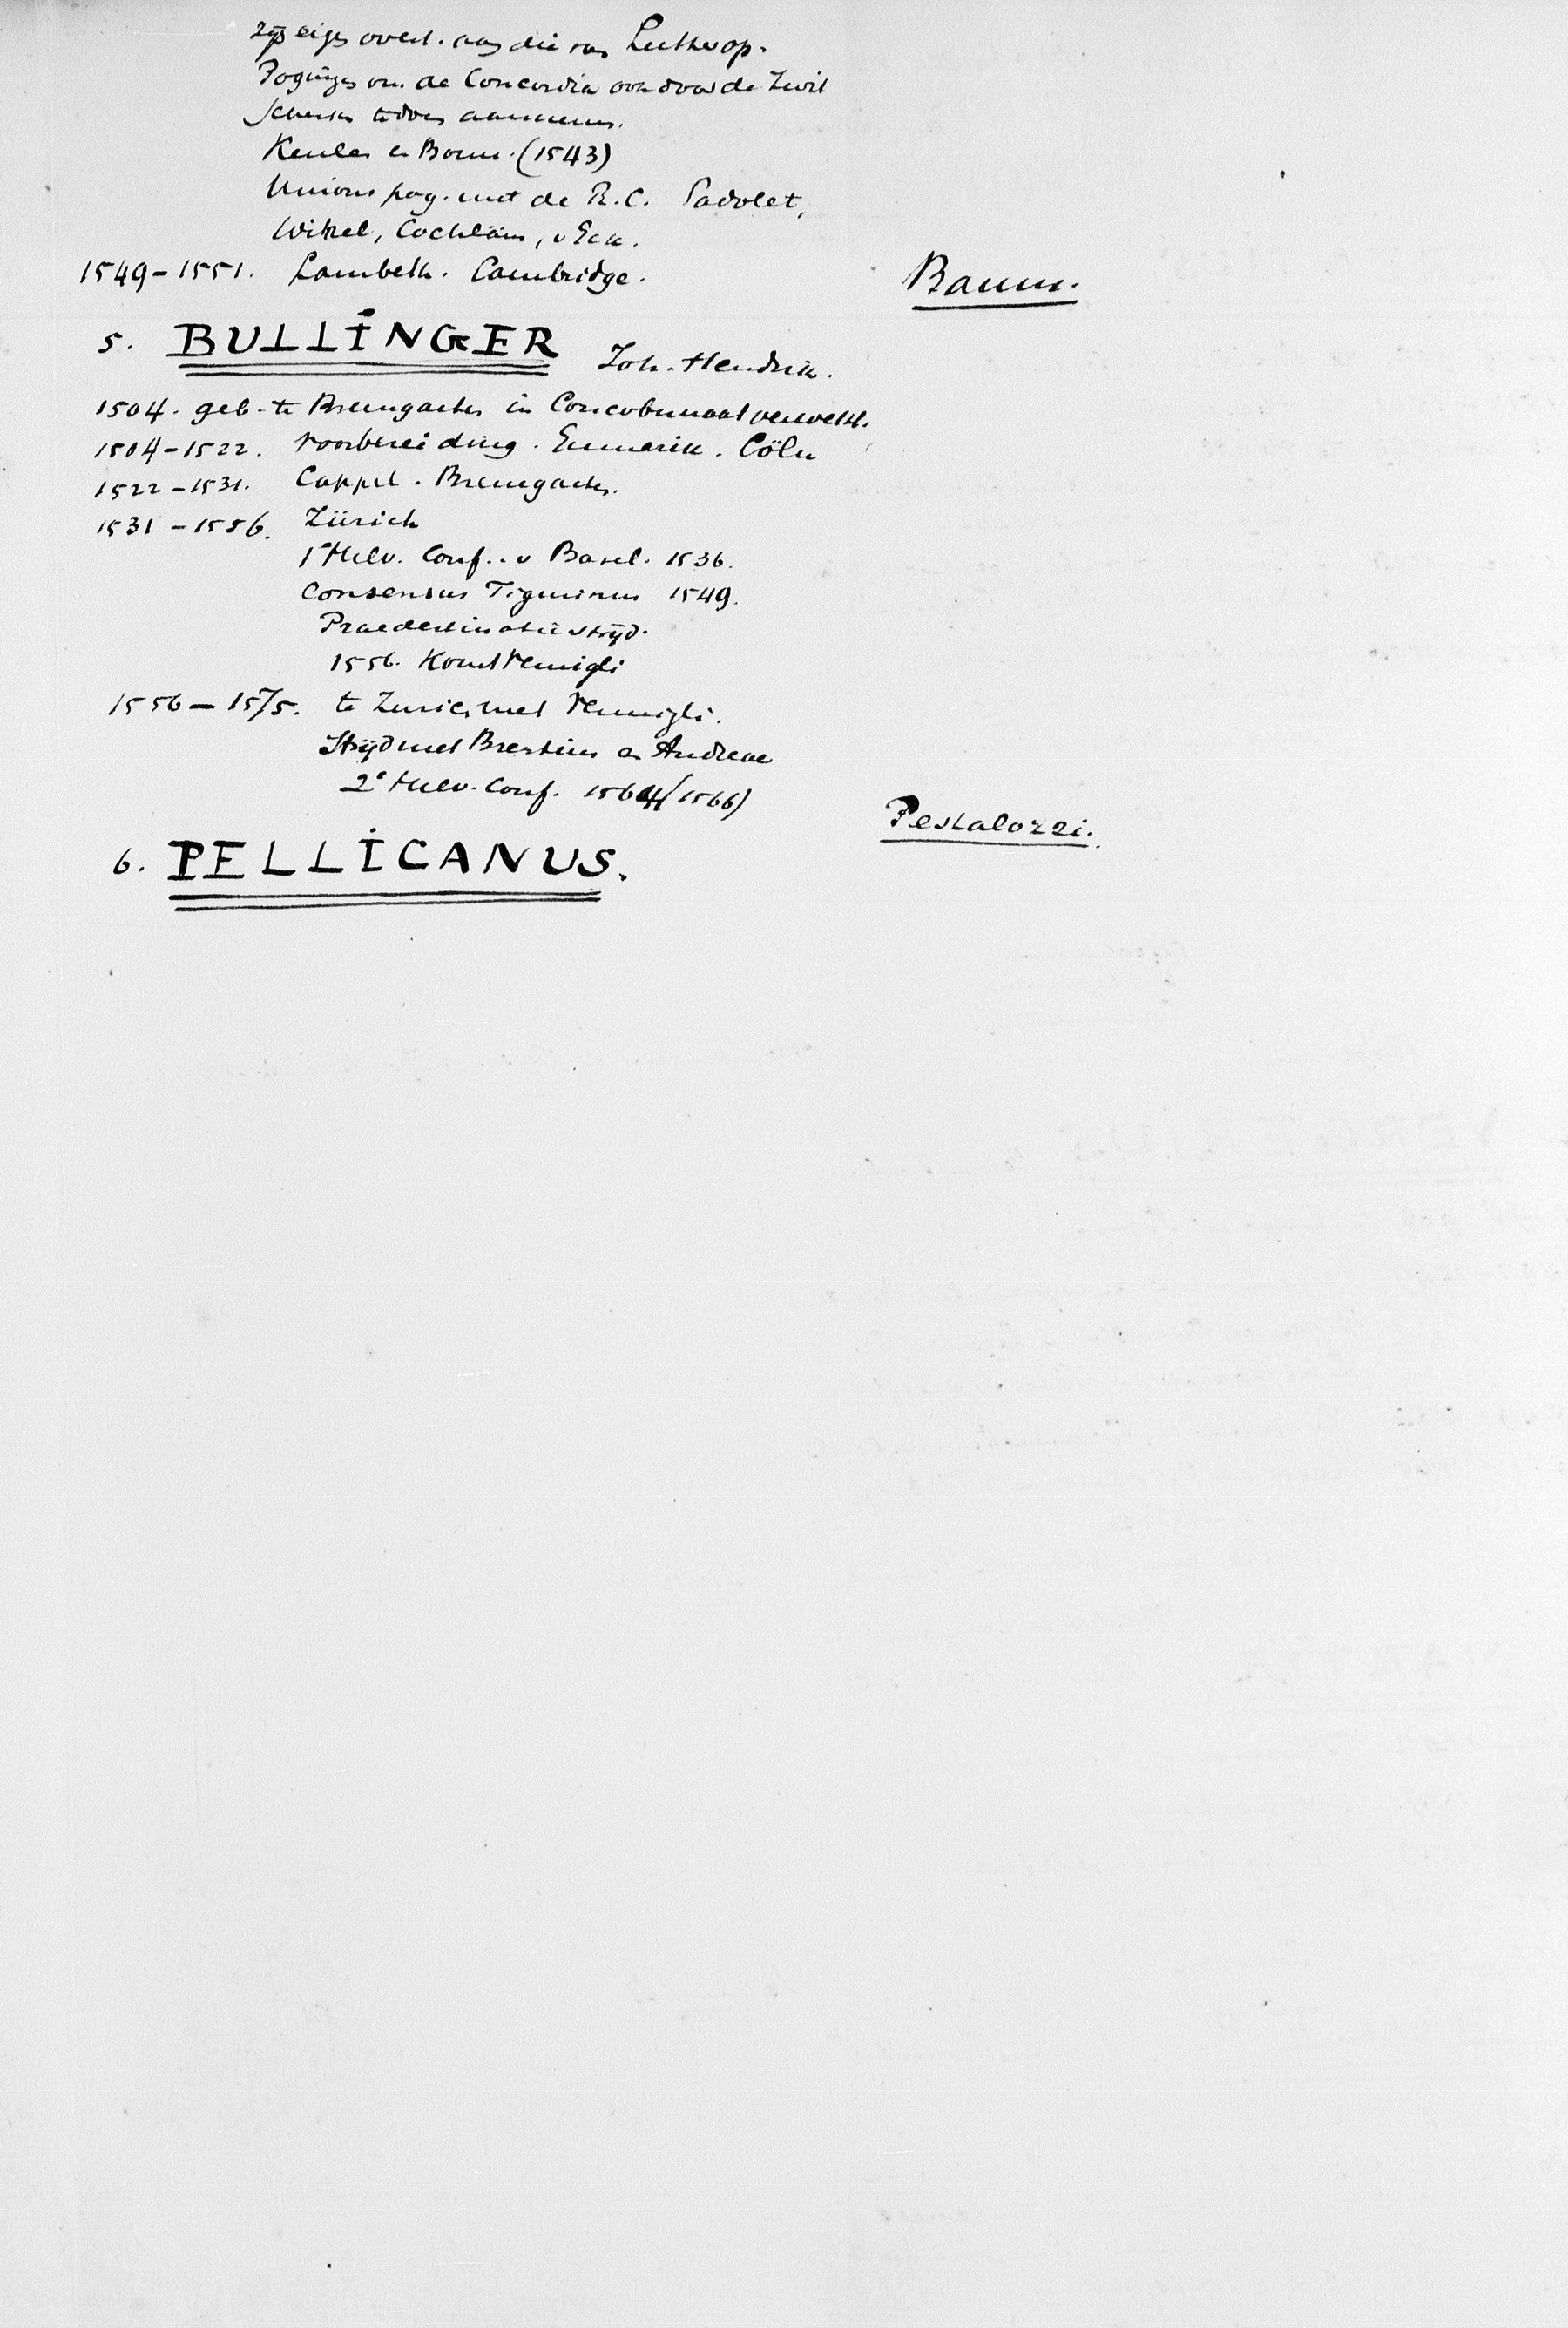 zijn eigen overt. aan die van Luther op.
Pogingen om de Concordia ook door de Zwit
schersche te doen aannemen.
Keulen en Bonn. (1543)
Unions pog. met de R.C. Sadolet,
Witzel, Cochläus, v Eck.
1549-1551. Lambeth. Cambridge.
Baum.
5. BULLINGER Joh. Hendrik.
1504. geb. te Bremgarten in Concubinaat verwekt.
1504-1522. voorbereiding. Emmerik. Cöln
1522-1531. Cappel. Bremgarten.
1531-1556. Zürich
1e Helv. Conf. v Basel. 1536.
Consensus Tigurinus 1549.
Praedestinatie strijd.
1556. Komt Vermigli
1556-1575. te Zurich met Vermigli.
Strijd met Brentius en Andreae
2e Helv. Conf. 1564 (1566)
Pestalozzi.
6. PELLICANUS.